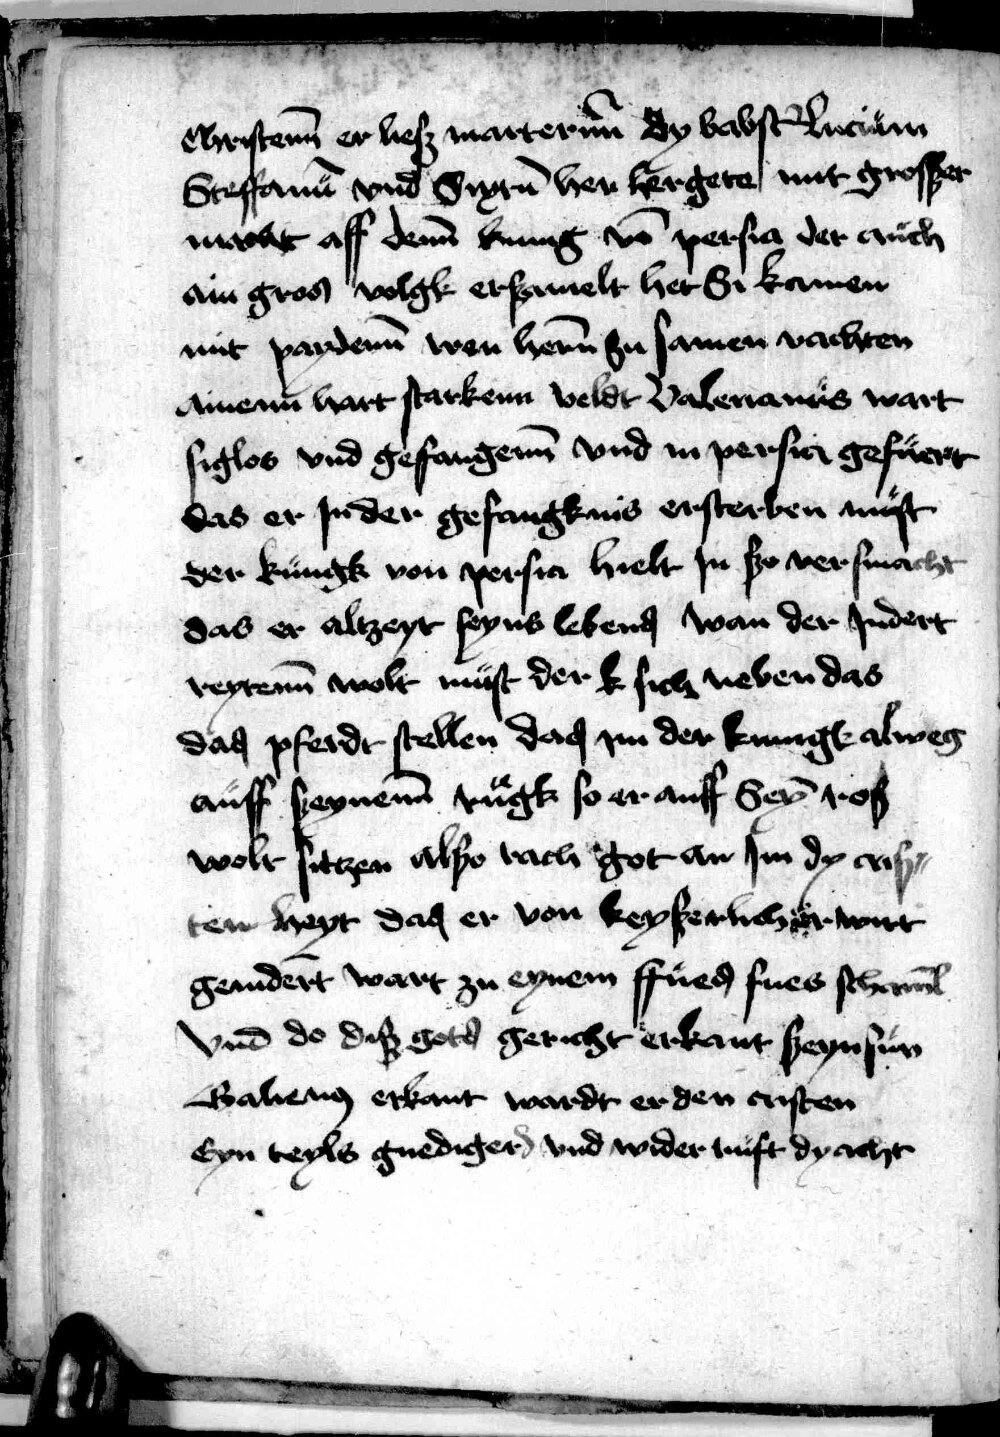 Christenn̄ er liesz marterrnn̄ dy babst Lucium
Steffanū vnd Sixtū her hergete mit grosszer
macht aff denn̄ kunig vō persia der auch
ain gros volgk ersamelt het Si kamen
mit paydenn̄ wen hern̄ zu samen vachten
ainenn̄ hart starkenn veldt Valerianus wart
siglos vnd geffangenn̄ vnd in persia gefuert
das er Jn der gefangknis ersterben muͤst
der kuͤngk von persia hielt Jn szo versmacht
das er altzeyt seyns lebens wan der Jndert
reytenn̄ wolt muͤst der k sich neben das
das pferdt stellen das im der kunigk alweg
auͤff szeynenn̄ ruͤgk so er auff Seyn̄ rosz
wolt sitzen alszo rach got an Jm dy cris„
ten heyt das er von keyszerlicher wirt
gemdert wart zu eynem ffues fues schaml
Vnd do disz gots gericht erkant szeyn sun
Galienus erkant wardt er den cristen
Eyn teyls gnediger vnd wider ruͤft dy acht